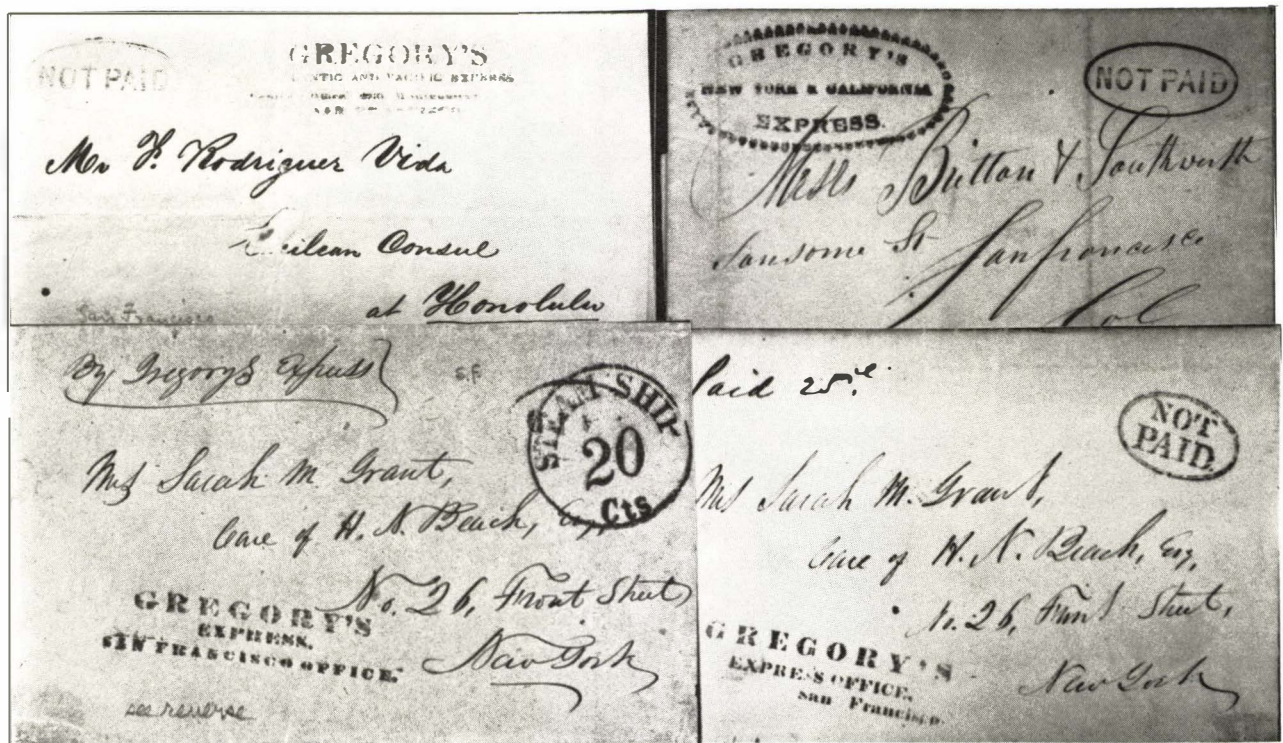 NOT PAID
GREGORY'S
NTIC AND PACIFIC EXPRESS
Mr F. Rodriguez Vida
ilean Consul
at Honolulu
San Francisco
GREGORY'S
NEW YORK & CALIFORNIA
EXPRESS.
NOT PAID
Messrs Britton & Southworth
Sansome St San francisco
Cal
By Gregory's Express
S.F
STEAM SHIP
20
Cts
Mrs Sarah M. Grant,
Care of H. N. Beach, Esq,
No. 26, Front Street,
New York
GREGORY'S
EXPRESS.
SAN FRANCISCO OFFICE.
see reverse
Paid 25c.
NOT
PAID.
Mrs Sarah M. Grant,
Care of H. N. Beach, Esq,
No. 26, Front Street,
New York
GREGORY'S
EXPRESS OFFICE.
San Francisco.